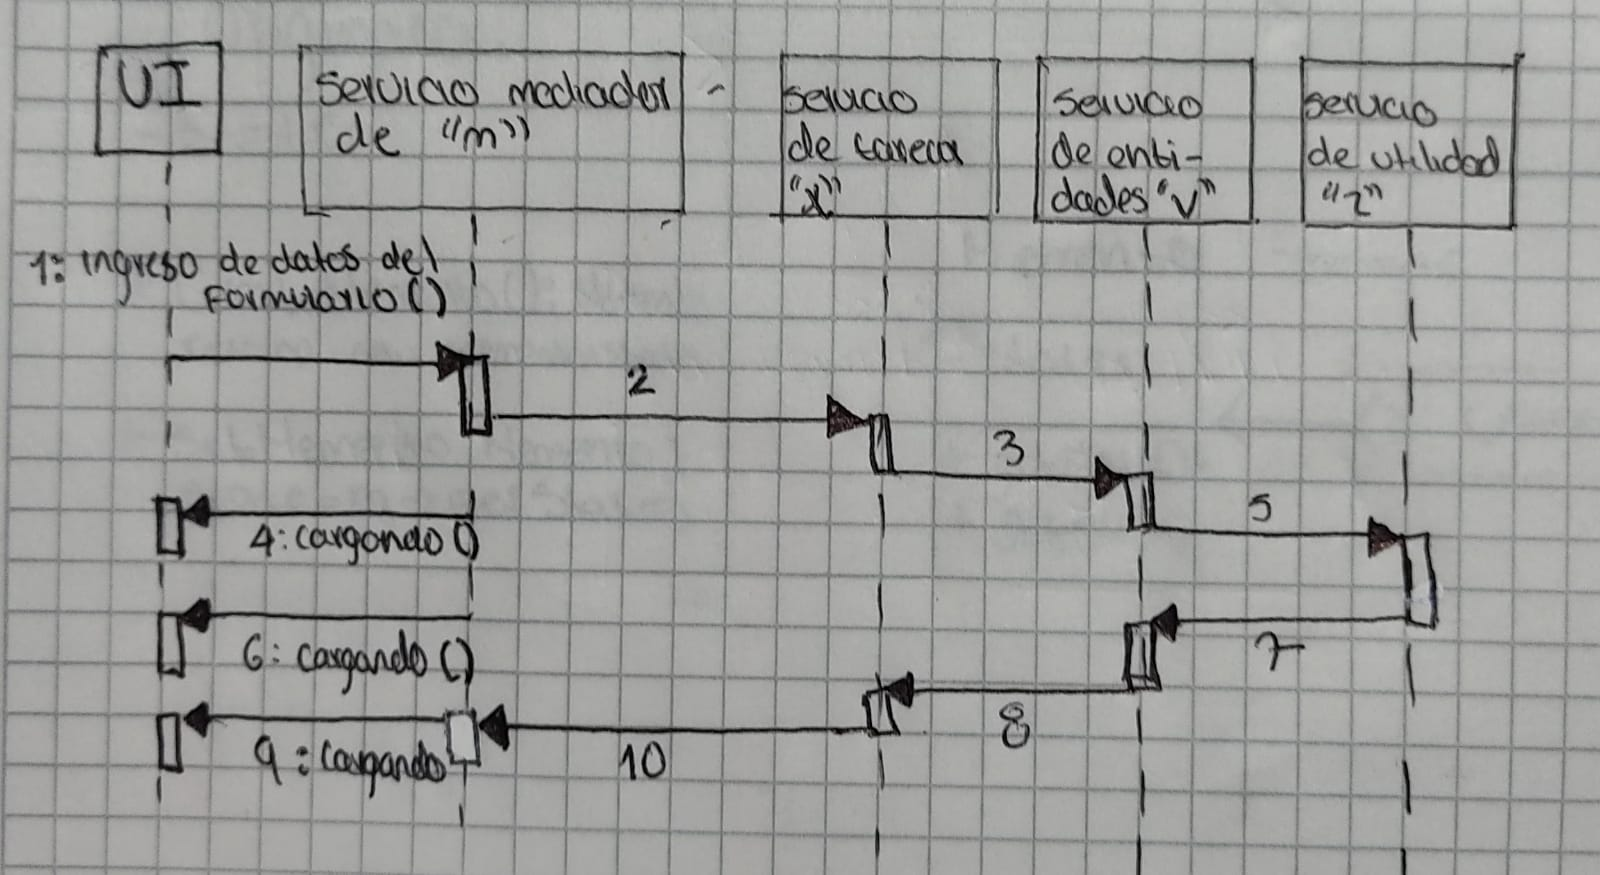 UI
Servicio mediador
de "m"
servicio
de tarea
"x"
servicio
de enti-
dades "v"
servicio
de utilidad
"z"
1: ingreso de datos del
Formulario ()
2
3
4: cargando ()
5
6: cargando ()
7
8
9: cargando
10